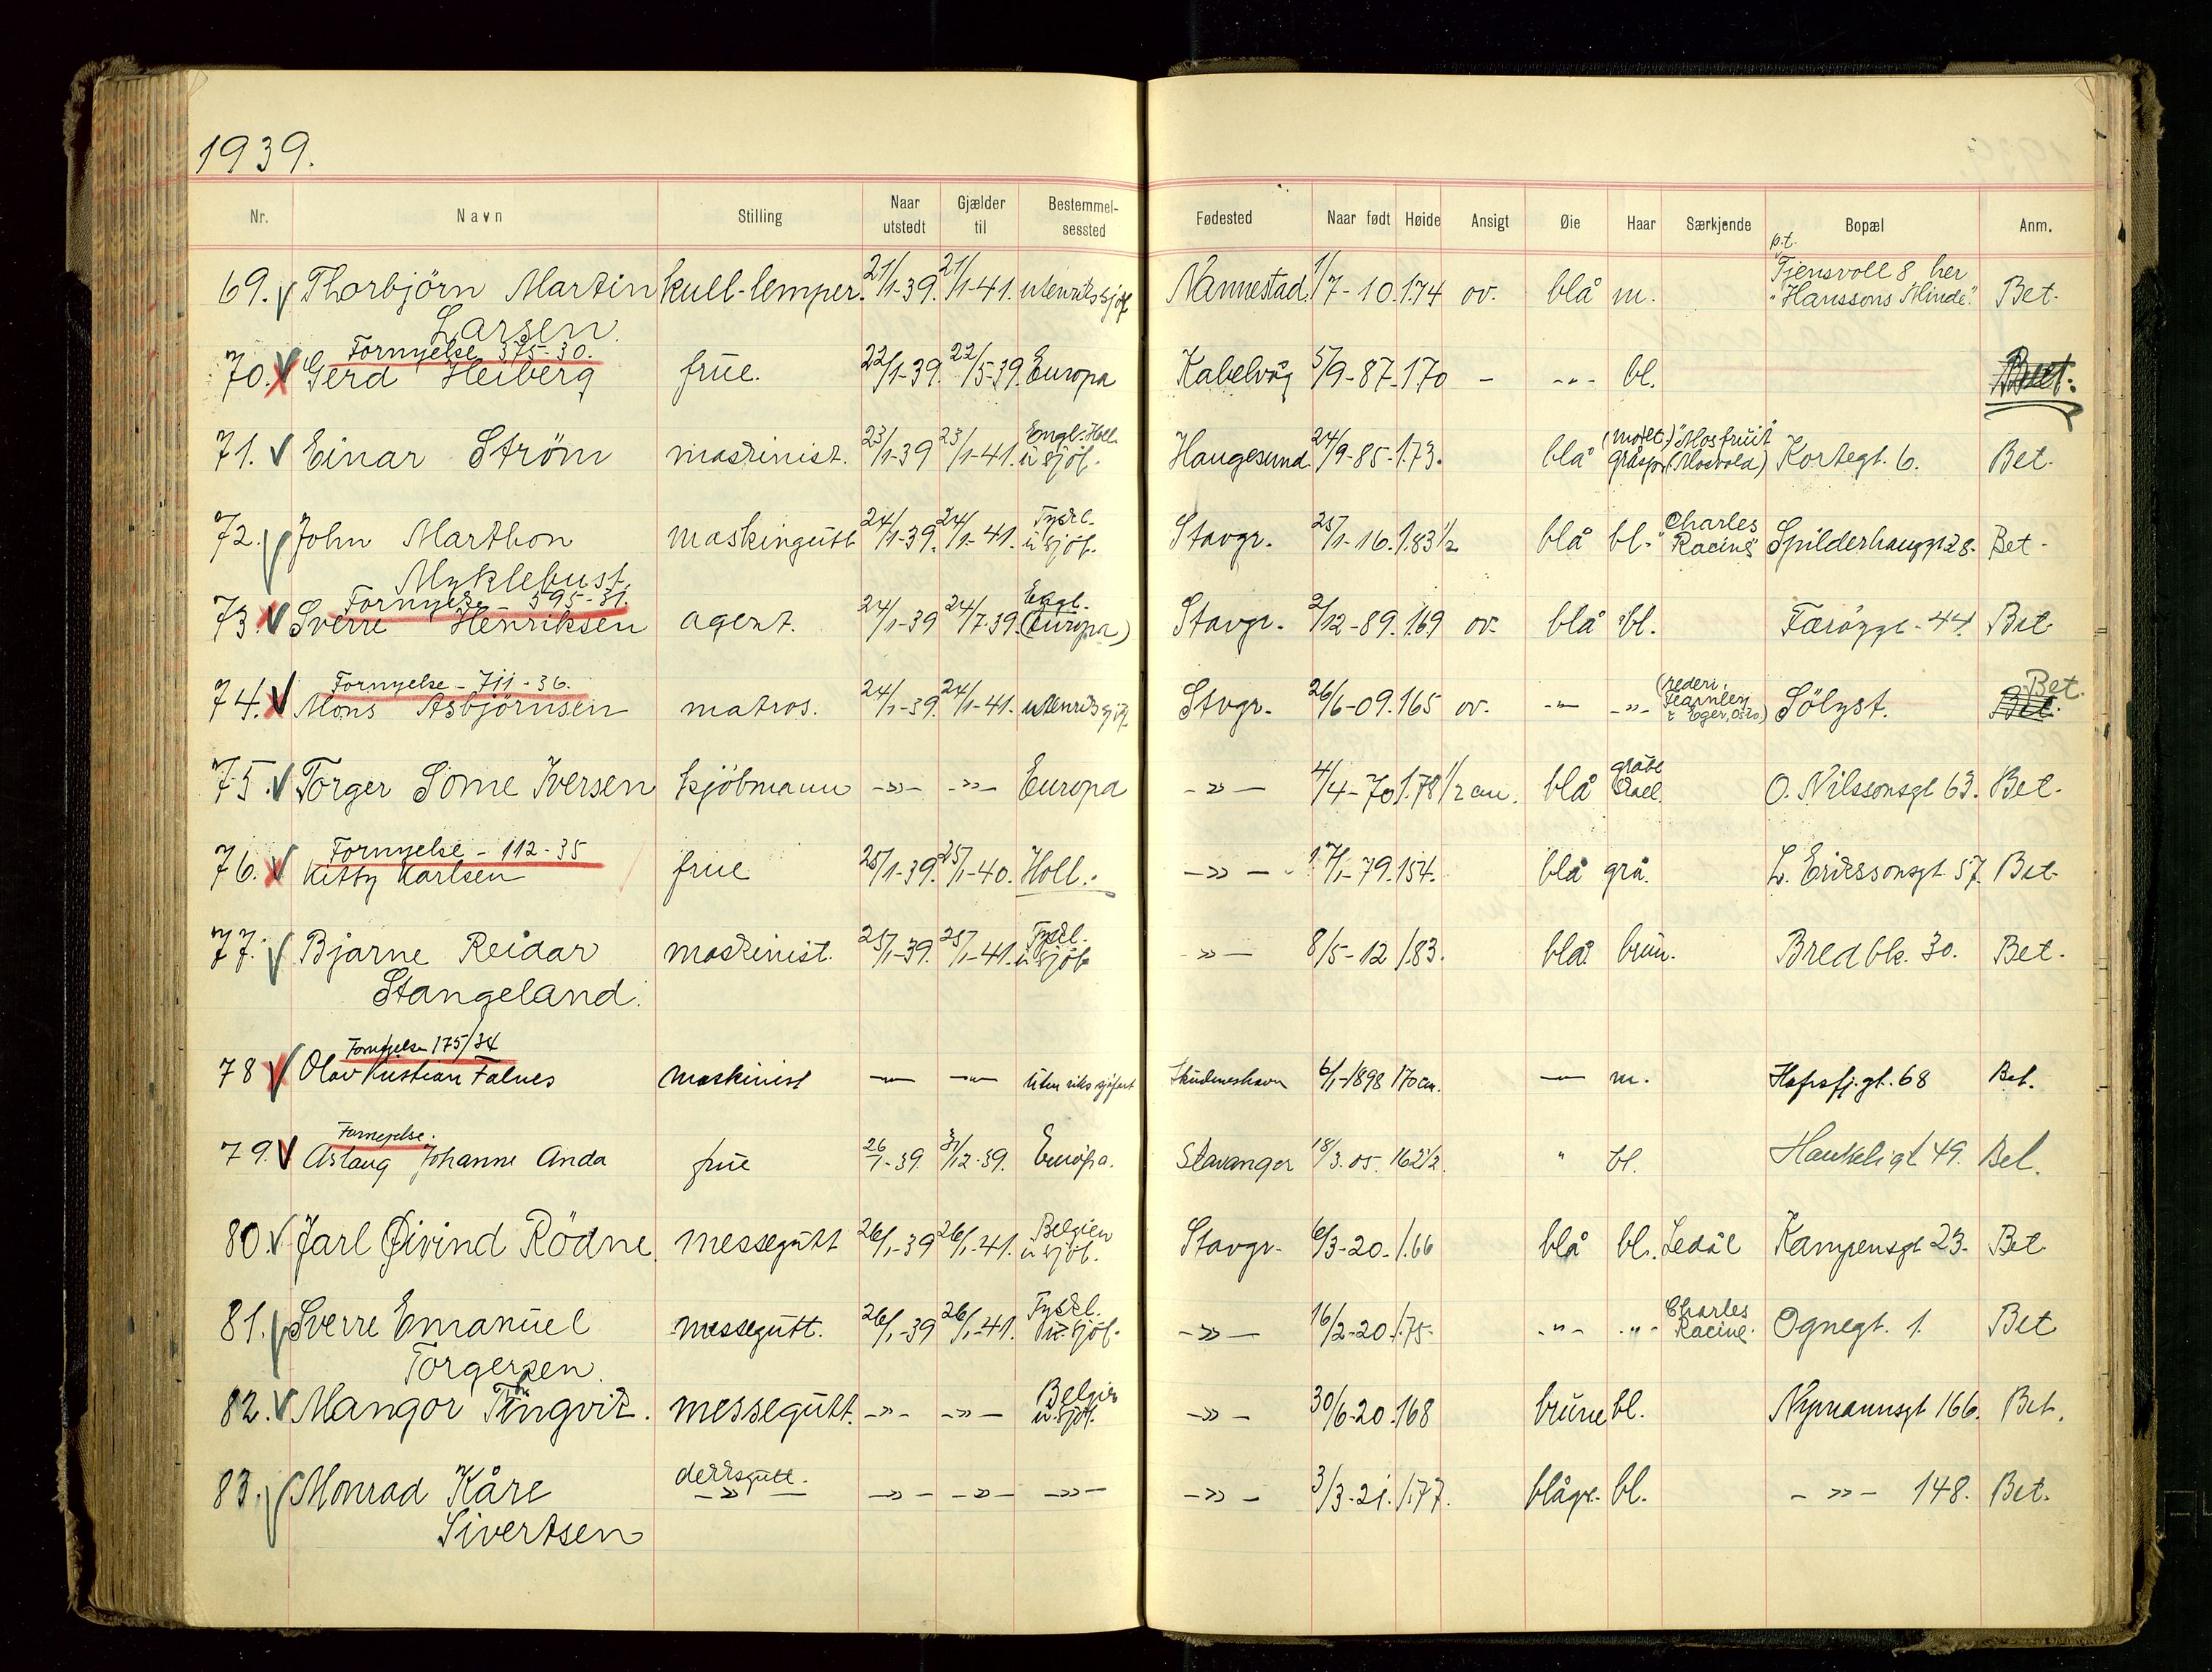 1939.
Nr. Navn Stilling Naar utstedt Gjælder til Bestemmelsessted Fødested Naar født Høide Ansigt Øie Haar Særkjende Bopæl Anm.
69. Thorbjörn Martin Larsen kull-lemper. 21/1-39. 21/1-41. utenriks sjöf. Nannestad. 1/7-10. 1.74 ov. blå m. p.t. Tjensvoll 8 her "Hanssons Minde". Bet.
Fornyelse 375-30.
70. Gerd Heiberg frue. 22/1-39. 22/5-39. Europa Kabelvåg 5/9-87. 170 - -"- bl. Bet.
71. Einar Ström maskinist. 23/1-39 23/1-41. Engl. Holl. u. sjöf. Haugesund. 24/9-85. 1.73. blå gråspr. "Mosfruit" (Mosvold) Kortegt. 6. Bet.
72. John Marthon Myklebust maskingutt 24/1-39. 24/1-41. Tyskl. u. sjöf. Stavgr. 25/1-16. 1.83 1/2 blå bl. "Charles Racine" Spilderhauggt 28. Bet.
Fornyelse - 595-31.
73. Sverre Henriksen agent. 24/1-39 24/7-39. Engl. (Europa) Stavgr. 2/12-89. 169 ov. blå bl. Færöygt. 44. Bet.
Fornyelse - 711-36.
74. Mons Asbjörnsen matros. 24/1-39. 24/1-41. utenriks sjöf. Stvgr. 26/6-09. 165 ov. -"- -"- (rederi, Fearnley & Eger, Oslo.) Sölyst. Bet. Bet.
75. Torger Some Iversen kjöbmann -»- -»- Europa -»- 4/4-70 1.78 1/2 cm. blå O. Nilssonsgt 63. Bet.
Fornyelse - 112-35
76. Kitty Karlsen frue 25/1-39. 25/1-40. Holl. -»- 17/1-79. 154. blå grå. L. Erikssonsgt. 57. Bet.
77. Bjarne Reidar Stangeland. maskinist. 25/1-39. 25/1-41. Tyskl. u. sjöf -»- 8/5-12 1.83. blå brun. Bredbk. 30. Bet.
Fornyelse 175/34
78 Olav Kristian Falnes maskinist -"- -"- Utenriks sjöfart Skudeneshavn 6/1-1898 170 cm. -"- m. Hafrsfj.gt. 68 Bet.
Fornyelse.
79. Aslaug Johanne Anda frue 26/1-39. 31/12-39. Europa. Stavanger 18/3.05. 162 1/2. " bl. Haukeligt 49. Bet.
80. Jarl Øivind Rödne. messegutt 26/1-39 26/1-41. Belgien u. sjöf. Stavgr. 6/3-20. 1.66 blå bl. Ledål Kampensgt 23. Bet
81. Sverre Emanuel Torgersen. messegutt. 26/1-39 26/1-41. Tyskl. u. sjöf. -»- 16/2-20. 1.75. -"- -"- Charles Racine. Ognegt. 1. Bet
82. Mangor Tingvik. messegutt. -»- -»- Belgien u. sjöf. -»- 30/6-20. 168 brune bl. Nymannsgt 166. Bet.
83. Monrad Kåre Sivertsen dekksgutt. -»- -»- -»- -»- -»- 3/3-21. 1.77. blågr. bl. -»- 148. Bet.